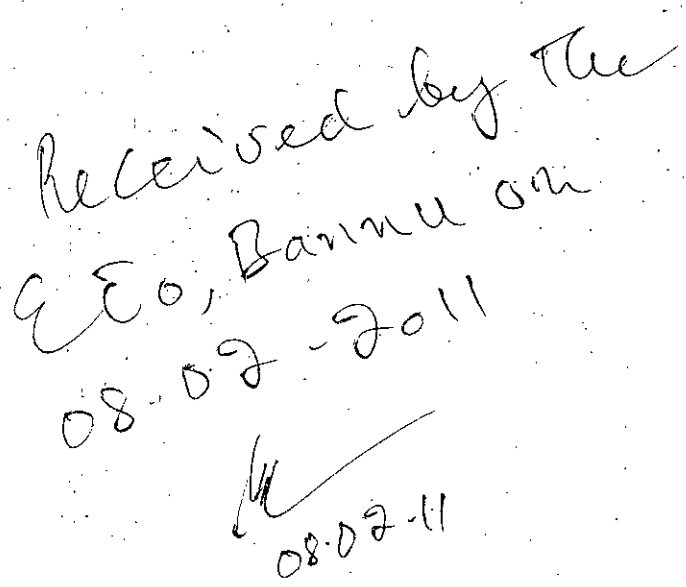 Received by the
EEO, Bannu on
08.02-2011
08.02.11